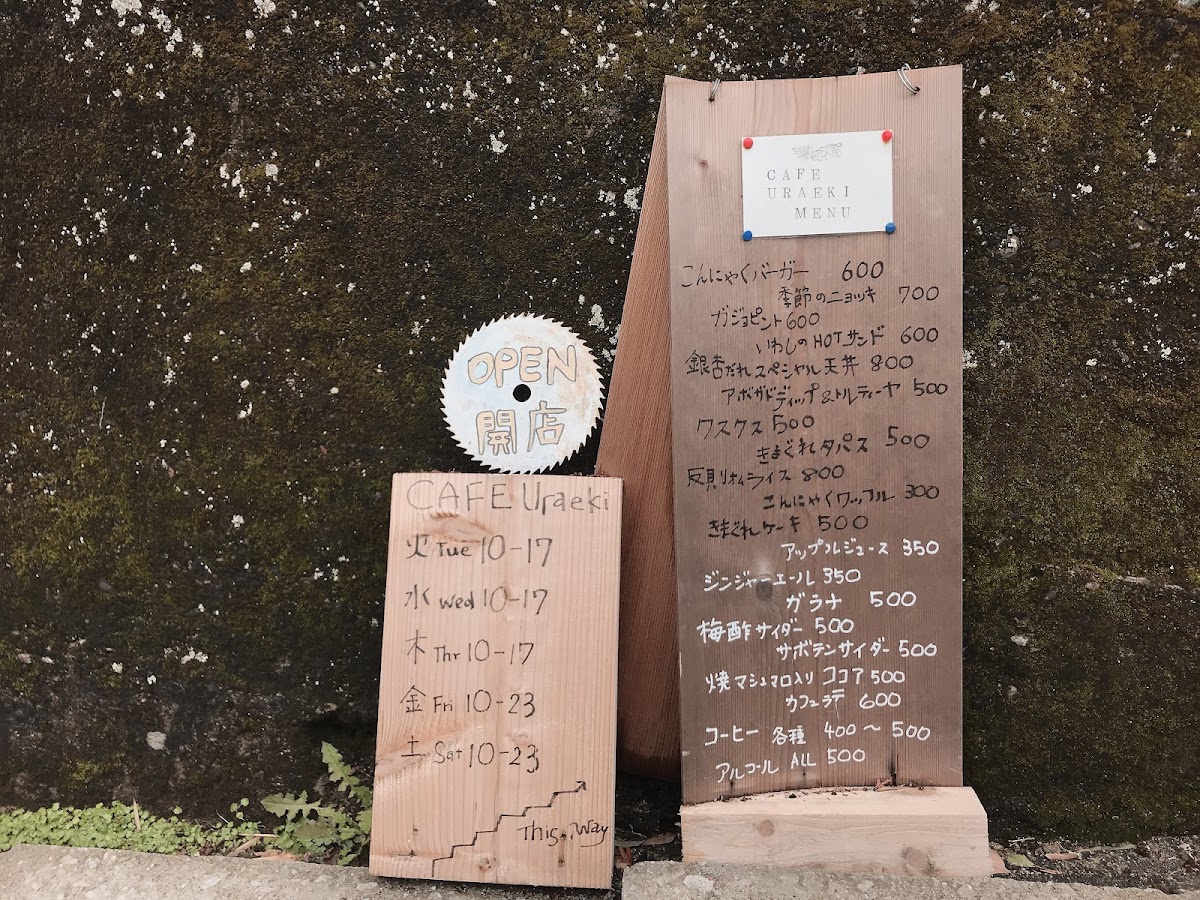 CAFE
URAEKI
MENU
こんにゃくバーガー 600
季節のニョッキ 700
ガジョピント 600
いわしのHOTサンド 600
銀杏だれスペシャル天丼 800
アボガドディップ&トルティーヤ 500
クスクス 500
きまぐれタパス 500
反則オムライス 800
こんにゃくワッフル 300
きまぐれケーキ 500
アップルジュース 350
ジンジャーエール 350
ガラナ 500
梅酢サイダー 500
サボテンサイダー 500
焼マシュマロ入りココア 500
カフェラテ 600
コーヒー 各種 400〜500
アルコール ALL 500
OPEN
開店
CAFE Uraeki
火 Tue 10-17
水 Wed 10-17
木 Thr 10-17
金 Fri 10-23
土 Sat 10-23
This Way